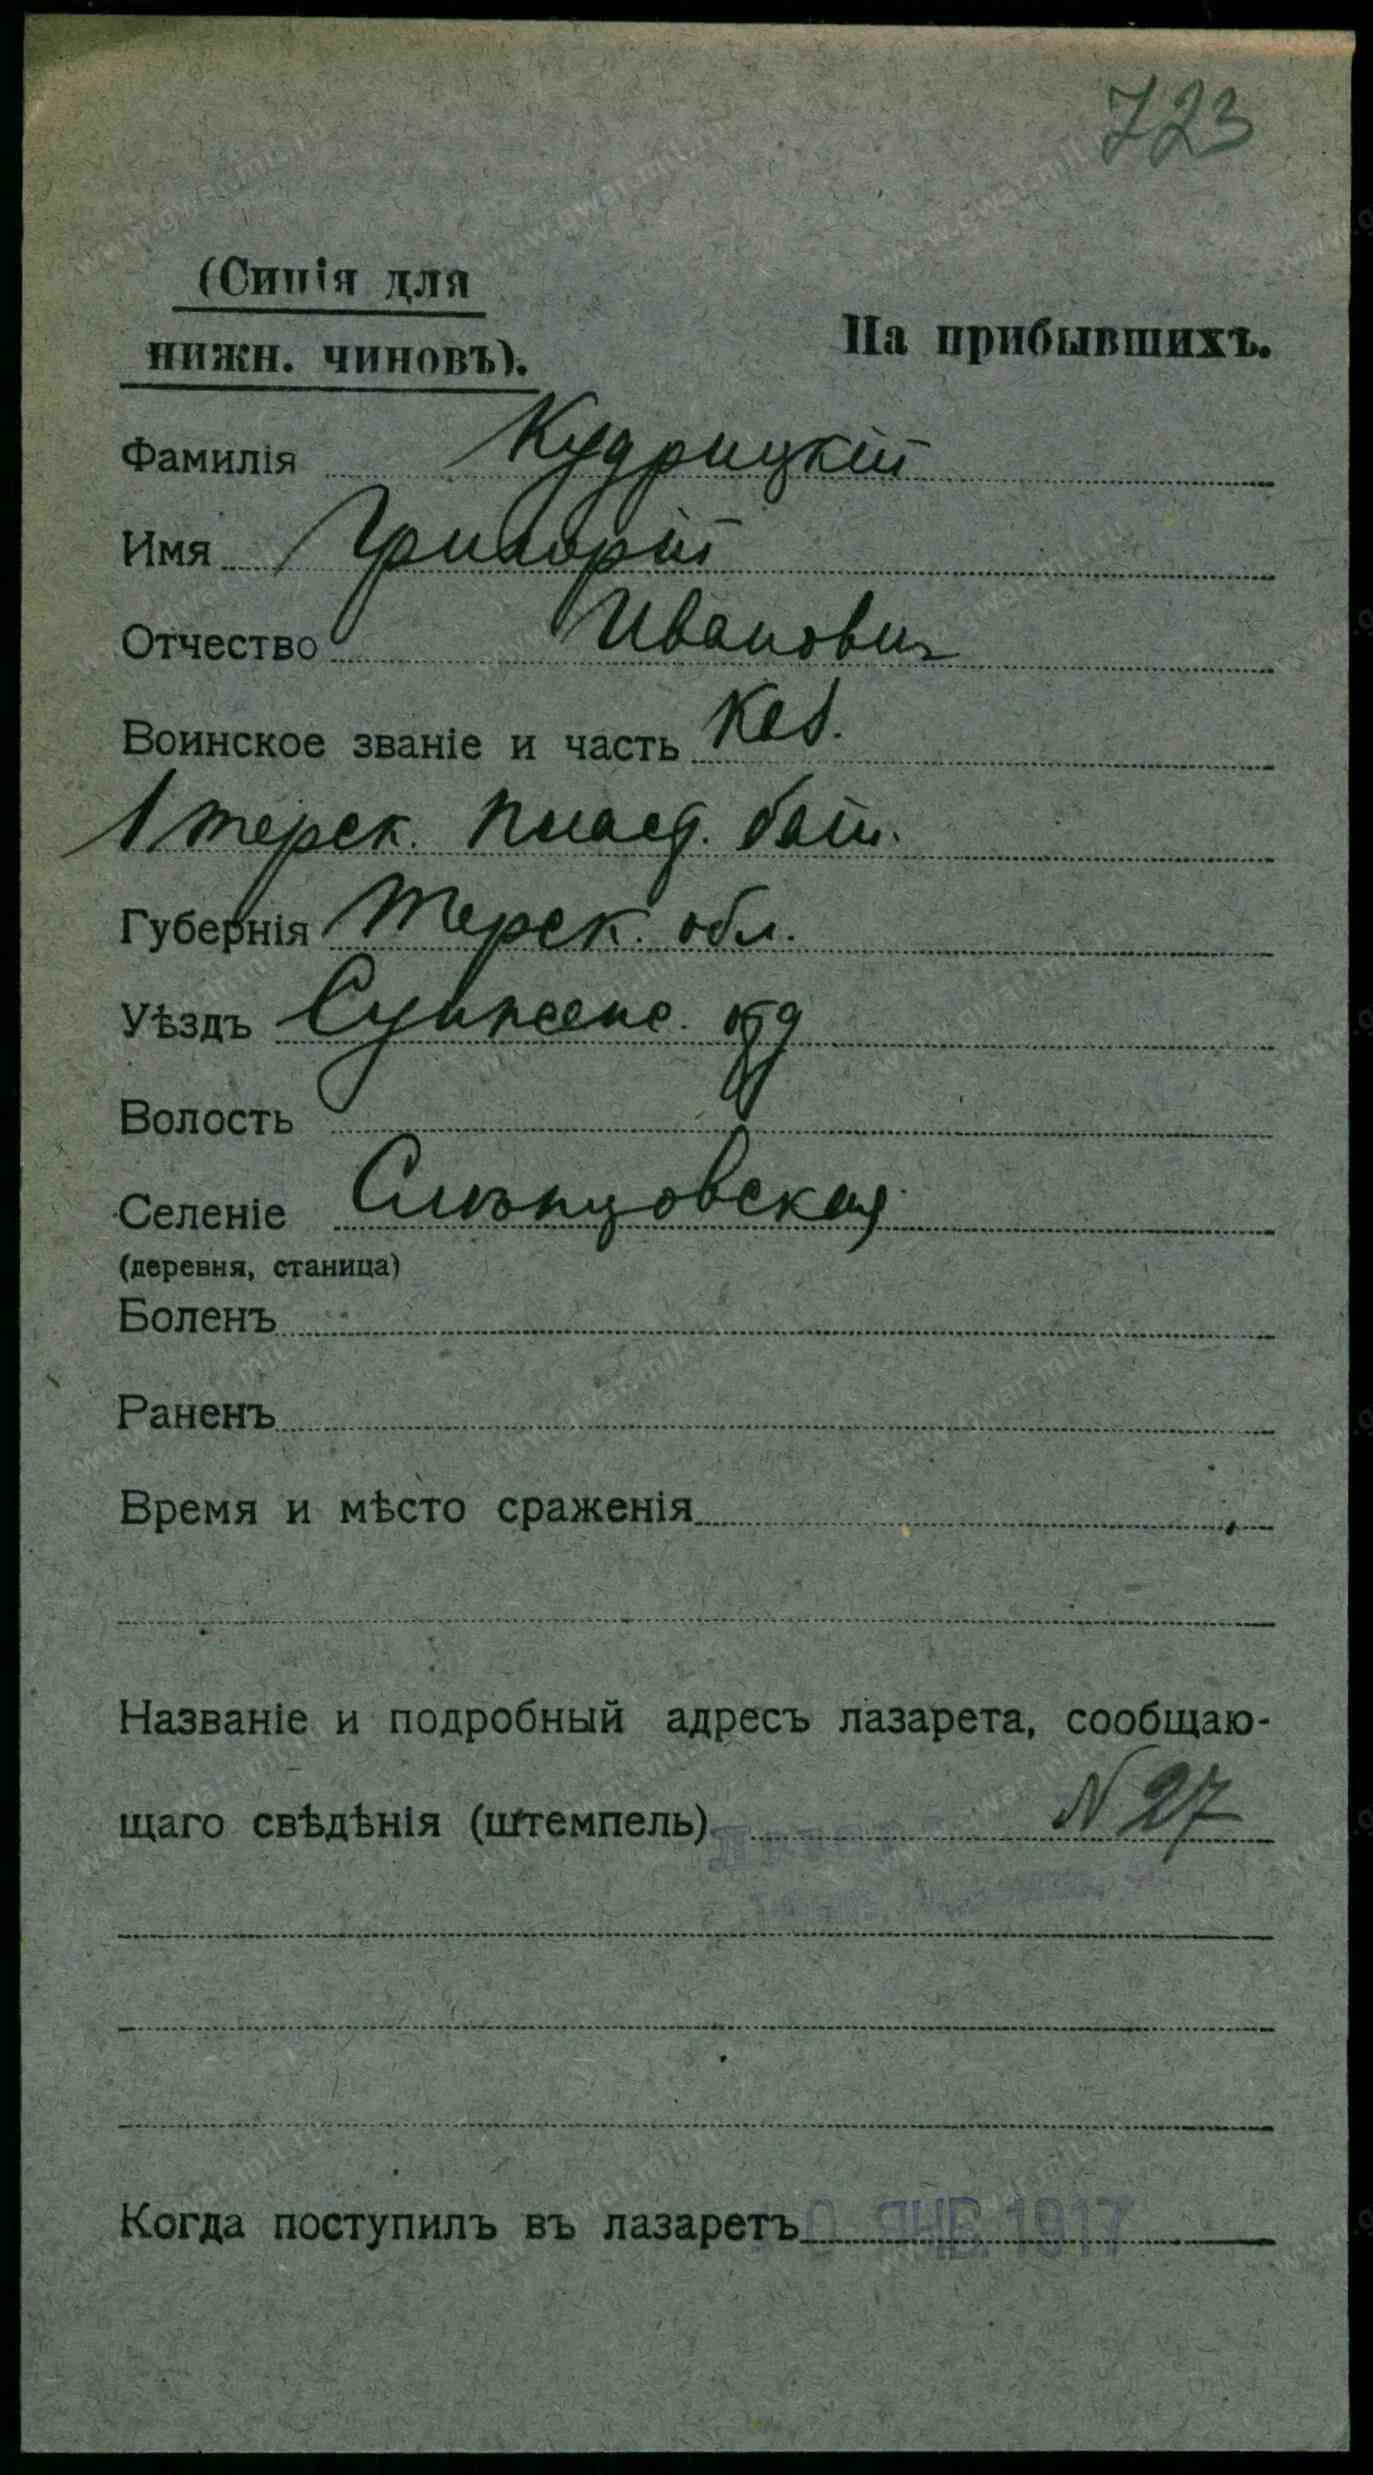 723
(Синія для
нижн. чиновъ).
На прибывшихъ.
Фамилія Кудрицкій
Имя Григорій
Отчество Иванович
Воинское званіе и часть Каз.
1 терск. пласт. бат.
Губернія Терск. обл.
Уѣздъ Сунженс. отд
Волость
Селеніе Слѣпцовская
(деревня, станица)
Боленъ
Раненъ
Время и мѣсто сраженія
Названіе и подробный адресъ лазарета, сообщаю-
щаго свѣдѣнія (штемпель) N 27
Когда поступилъ въ лазаретъ 0 ЯНВ. 1917
www.gwar.mil.ru